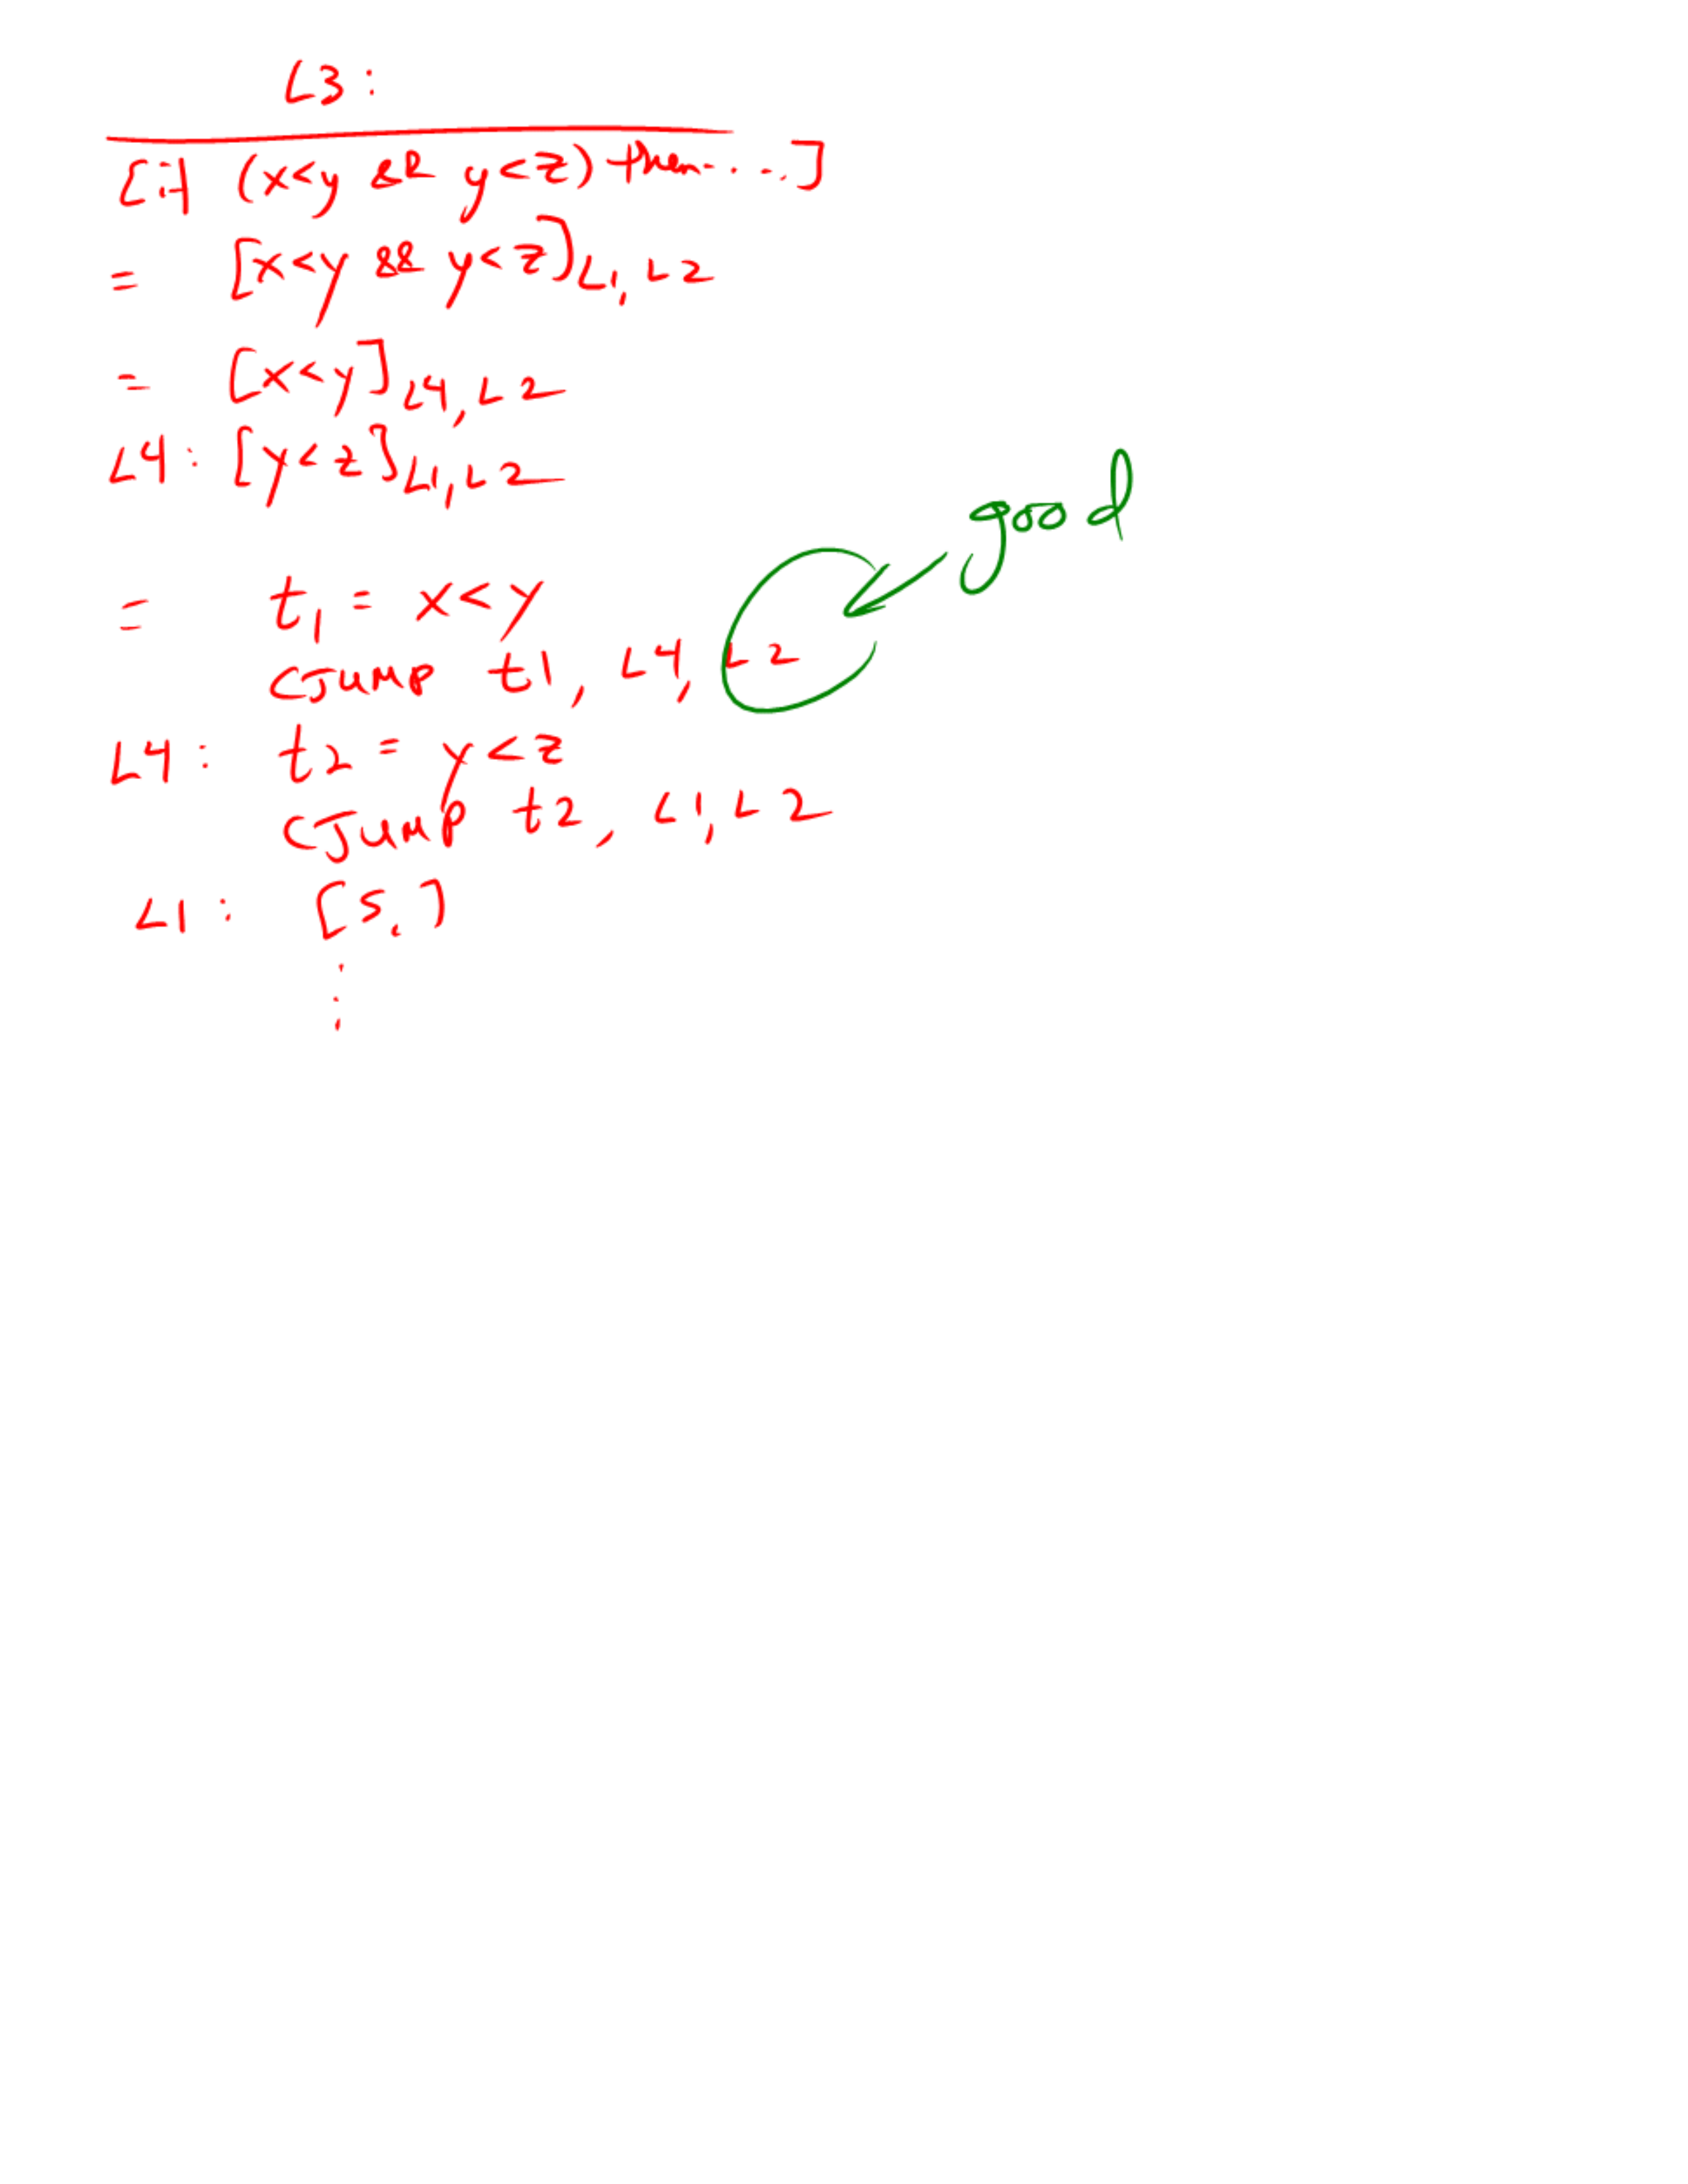 L3:
[if (x<y && y<z) then....]
= [x<y && y<z]L1,L2
= [x<y]L4,L2
L4: [y<z]L1,L2
good
= t1 = x<y
CJump t1, L4, L2
L4: t2 = y<z
CJump t2, L1, L2
L1: [S1]
⋮